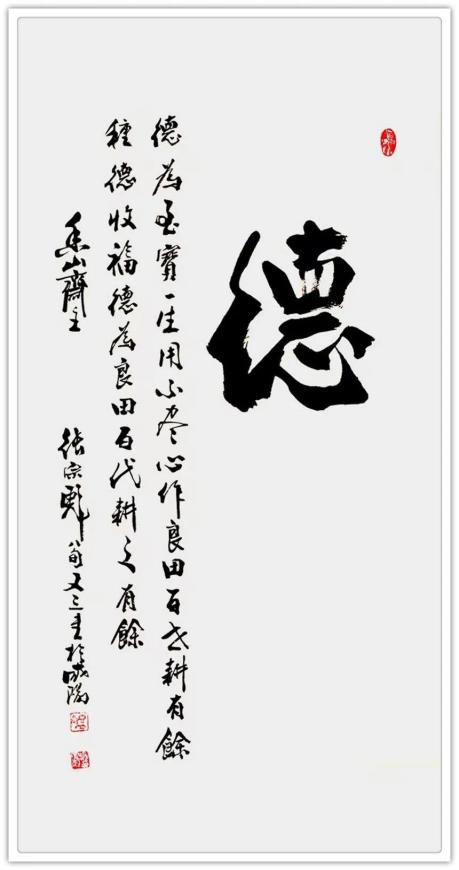 德
德為至寶一生用不尽心作良田百世耕有餘
種德收福德為良田百代耕之有餘
香山齋主 張宗彪八旬又三书於咸陽